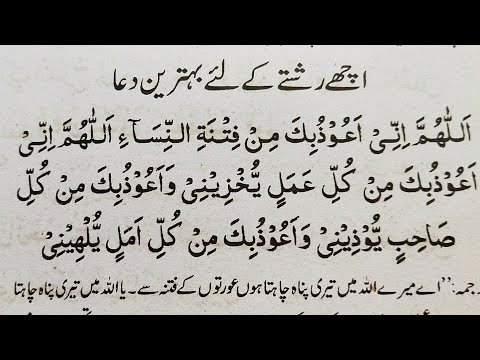 اچھے رشتے کے لئے بہترین دعا
اَللّٰهُمَّ اِنِّیْ اَعُوْذُبِكَ مِنْ فِتْنَةِ النِّسَآءِ اَللّٰهُمَّ اِنِّیْ
اَعُوْذُبِكَ مِنْ كُلِّ عَمَلٍ یُّخْزِیْنِیْ وَاَعُوْذُبِكَ مِنْ كُلِّ
صَاحِبٍ یُّوْذِیْنِیْ وَاَعُوْذُبِكَ مِنْ كُلِّ اَمَلٍ یُّلْهِیْنِیْ
جمہ: ”اے میرے اللہ میں تیری پناہ چاہتا ہوں عورتوں کے فتنہ سے۔ یا اللہ میں تیری پناہ چاہتا